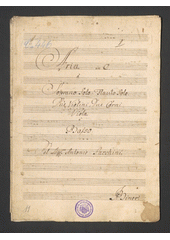 Aria in C
a
Soprano Solo Flauto Solo
Due Violini Due Corni
Viola
e
Basso
Del Sigr Antonio Sacchini